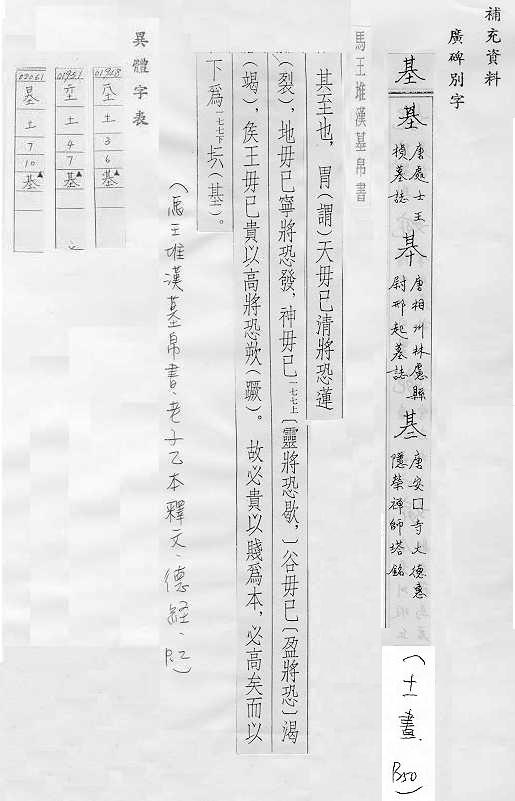 補充資料
廣碑別字
基
基 唐處士王楨墓誌
基 唐相州林慮縣尉邢起墓誌
基 唐安口寺大德惠隱榮禪師塔銘
(十一畫. P.50)
馬王堆漢墓帛書
其至也,胃(謂)天毋已清將恐蓮
(裂),地毋已寧將恐發,神毋已一七七上〔靈將恐歇,〕谷毋已〔盈將恐〕渴
(竭),侯王毋已貴以高將恐欮(蹶)。故必貴以賤爲本,必高矣而以
下爲一七七下坛(基)。
(馬王堆漢墓帛書.老子乙本釋文.德經.P.2)
異體字表
01958
土
3
6
基▲
01961
土
4
7
基▲
02061
土
7
10
基▲